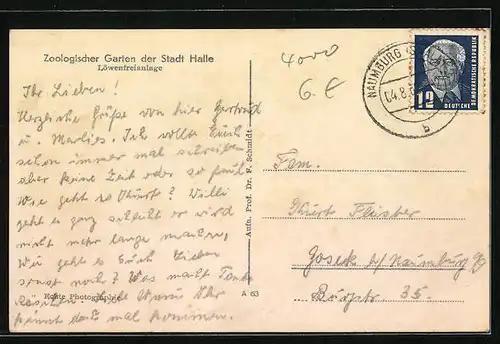 Zoologischer Garten der Stadt Halle
Löwenfreianlage
4000
6.€
NAUMBURG
04.8.
b
12
DEUTSCHE DEMOKRATISCHE REPUBLIK
Ihr Lieben!
Herzliche Grüße von hier Gertrud
u. Marlies. Ich wollte Euch
schon immer mal schreiben
aber keine Zeit oder so faul.
Wie geht es Kurt? Willi
geht es ganz schlecht er wird
nicht mehr lange machen,
Wie geht es Euch Lieben
sonst noch? Was macht Tante
Ihr
könnt doch mal kommen.
Echte Photographie
A 63
Aufn. Prof. Dr. F. Schmidt
Fam.
Kurt Fleister
Goseck b/Naumburg
35.